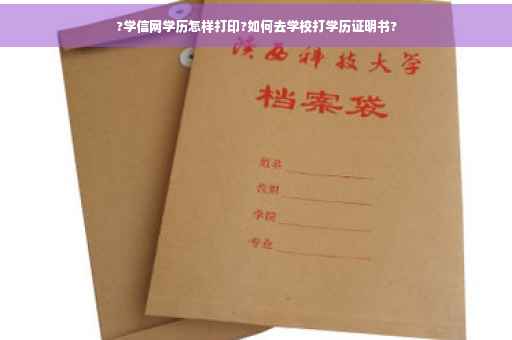 ?学信网学历怎样打印?如何去学校打学历证明书?
陕西科技大学
档案袋
姓名
班级
学院
专业